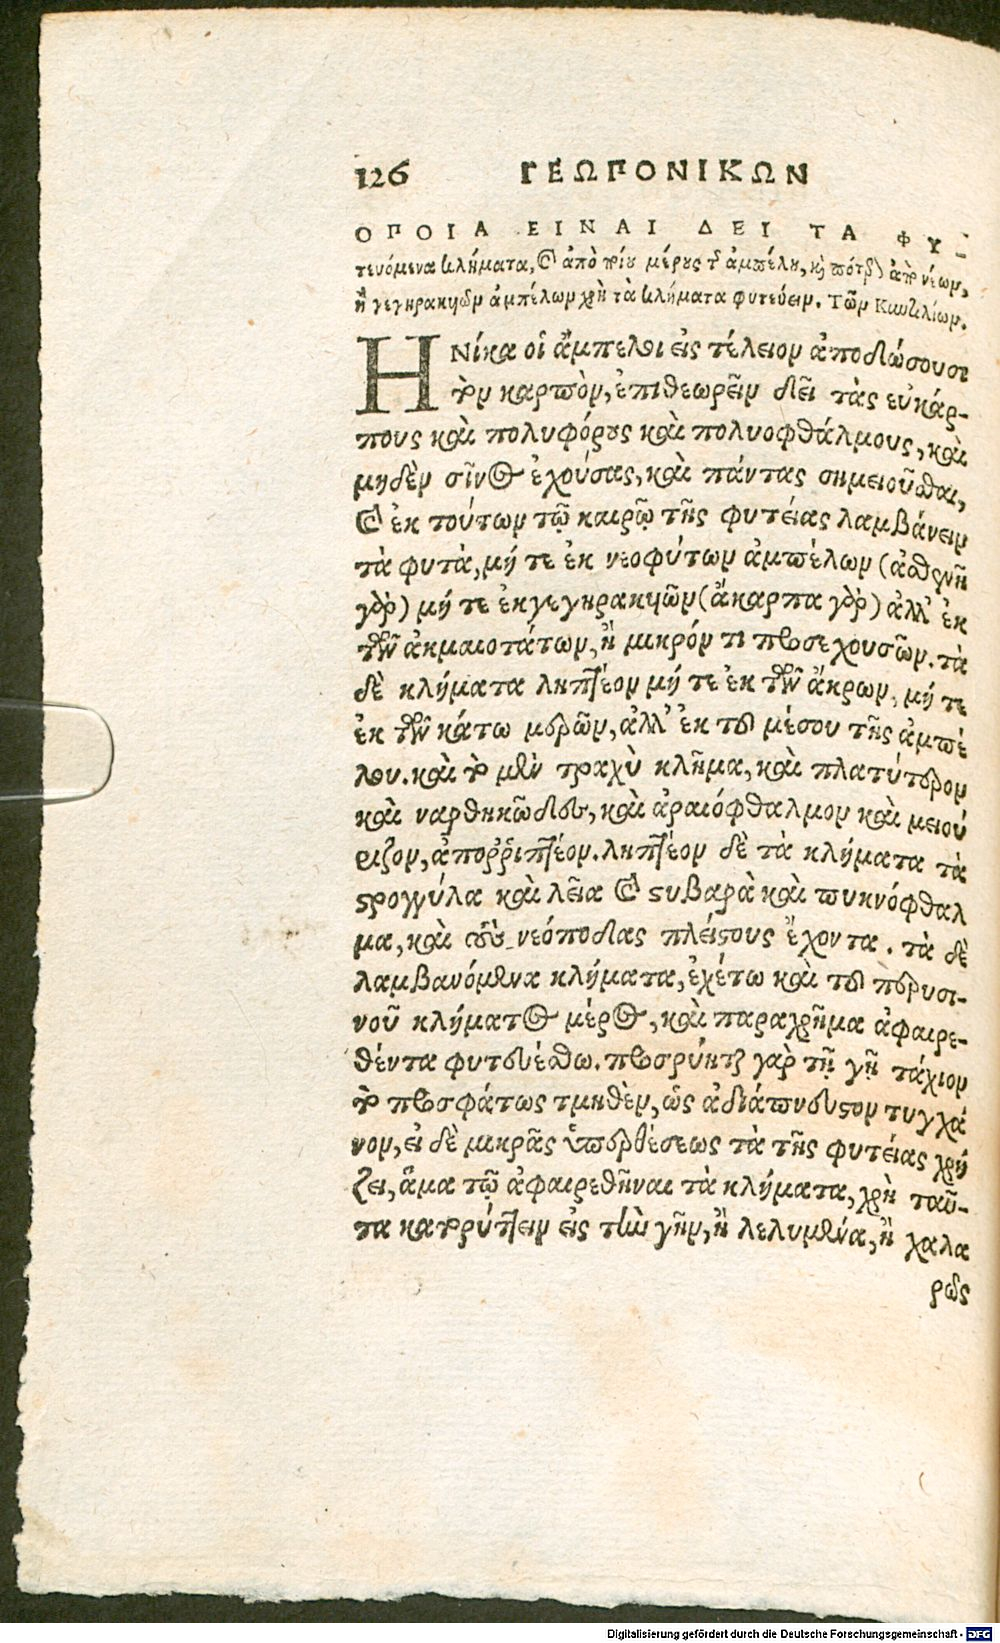 126 ΓΕΩΠΟΝΙΚΩΝ
ΟΠΟΙΑ ΕΙΝΑΙ ΔΕΙ ΤΑ ΦΥ-
τευόμενα κλήματα, καὶ ἀπὸ ποίου μέρους τῆς ἀμπέλου, καὶ πότερον ἀπὸ νέων,
ἢ γεγηρακυιῶν ἀμπέλων χρὴ τὰ κλήματα φυτεύειν. Τῶν Κυντιλίων.
Ηνίκα οἱ ἄμπελοι εἰς τέλειον ἀποδώσουσι
τὸν καρπὸν, ἐπιθεωρεῖν δεῖ τὰς εὐκάρ-
πους καὶ πολυφόρους καὶ πολυοφθάλμους, καὶ
μηδὲν σῖνος ἐχούσας, καὶ πάντας σημειοῦσθαι,
καὶ ἐκ τούτων τῷ καιρῷ τῆς φυτείας λαμβάνειν
τὰ φυτὰ, μή τε ἐκ νεοφύτων ἀμπέλων (ἀσθενῆ
γὰρ) μή τε ἐκ γεγηρακυιῶν (ἄκαρπα γὰρ) ἀλλ' ἐκ
τῶν ἀκμαιοτάτων, ἢ μικρόν τι προσεχουσῶν. τὰ
δὲ κλήματα ληπτέον μή τε ἐκ τῶν ἄκρων, μή τε
ἐκ τῶν κάτω μερῶν, ἀλλ' ἐκ τοῦ μέσου τῆς ἀμπέ
λου. καὶ τὸ μὲν τραχὺ κλῆμα, καὶ πλατύτερον
καὶ ναρθηκῶδες, καὶ ἀραιόφθαλμον καὶ μειού
ριζον, ἀποῤῥιπτέον. ληπτέον δὲ τὰ κλήματα τὰ
στρογγύλα καὶ λεῖα καὶ στυβαρὰ καὶ πυκνόφθαλ
μα, καὶ νεόποδας πλείστους ἔχοντα. τὰ δὲ
λαμβανόμενα κλήματα, ἐχέτω καὶ τοῦ περυσι-
νοῦ κλήματος μέρος, καὶ παραχρῆμα ἀφαιρε-
θέντα φυτευέσθω. προσφύεται γὰρ τῇ γῇ τάχιον
τὸ προσφάτως τμηθὲν, ὡς ἀδιάπνευστον τυγχά
νον, εἰ δὲ μικρᾶς ὑπερθέσεως τὰ τῆς φυτείας χρή
ζει, ἅμα τῷ ἀφαιρεθῆναι τὰ κλήματα, χρὴ ταῦ-
τα κατορύττειν εἰς τὴν γῆν, ἢ λελυμένα, ἢ χαλα
ρῶς
Digitalisierung gefördert durch die Deutsche Forschungsgemeinschaft - DFG